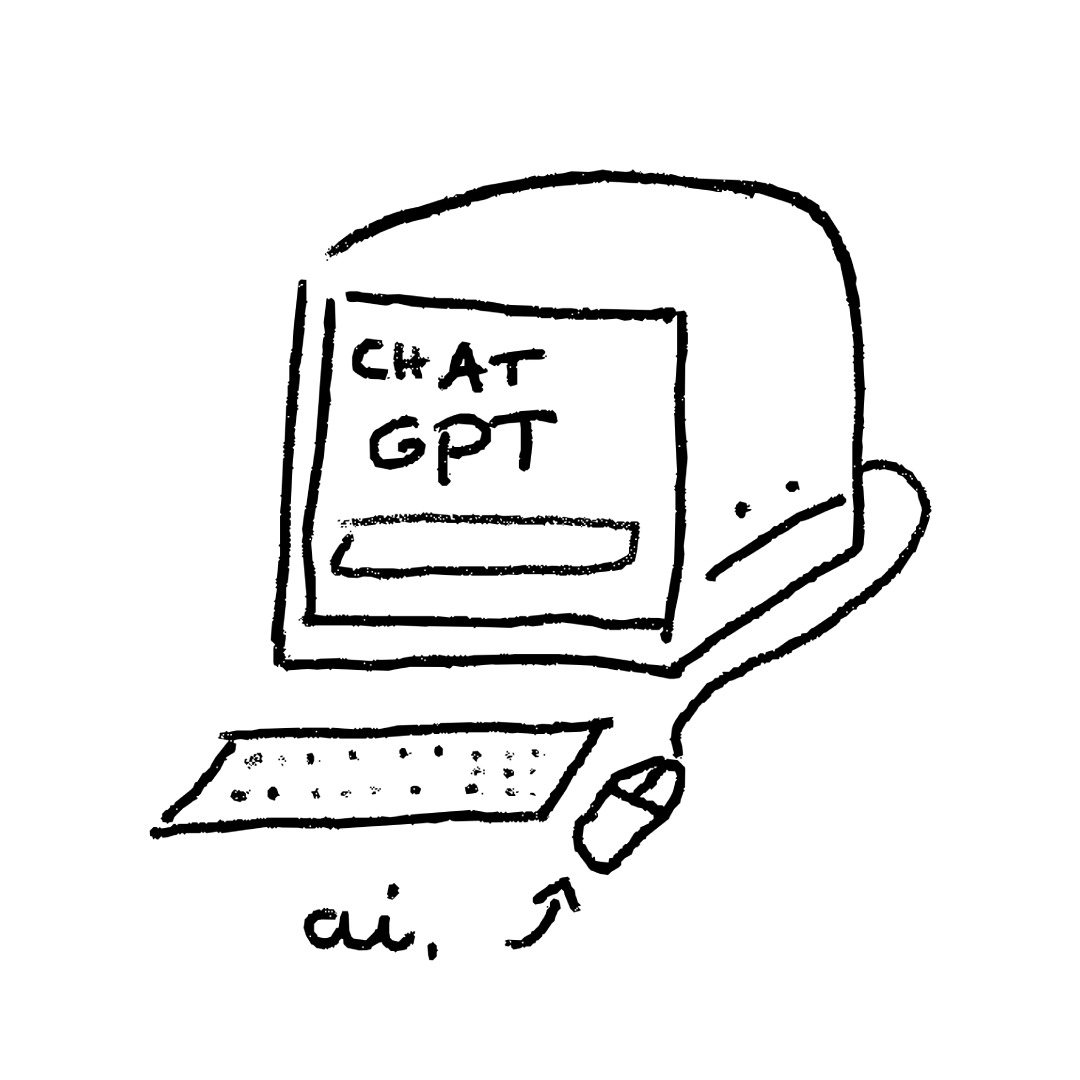 CHAT
GPT
ai,